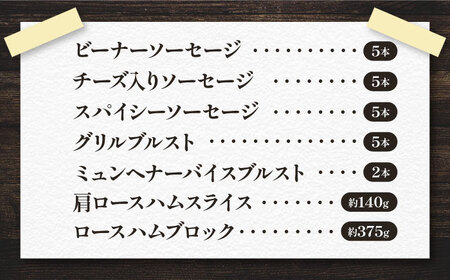 ビーナーソーセージ ・・・・・・・・・・ 5本
チーズ入りソーセージ ・・・・・・・・・ 5本
スパイシーソーセージ ・・・・・・・・・ 5本
グリルブルスト ・・・・・・・・・・・・・ 5本
ミュンヘナーバイスブルスト ・・・・・ 2本
肩ロースハムスライス ・・・・・・・ 約140g
ロースハムブロック ・・・・・・・・ 約375g